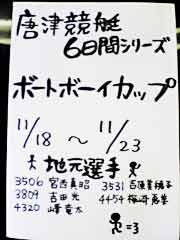 唐津競艇
6日間シリーズ
ボートボーイカップ
11/18 〜 11/23
地元選手
3506 宮西真昭 3531 百原美穂子
3809 吉田光
4320 峰竜太 4454
=3